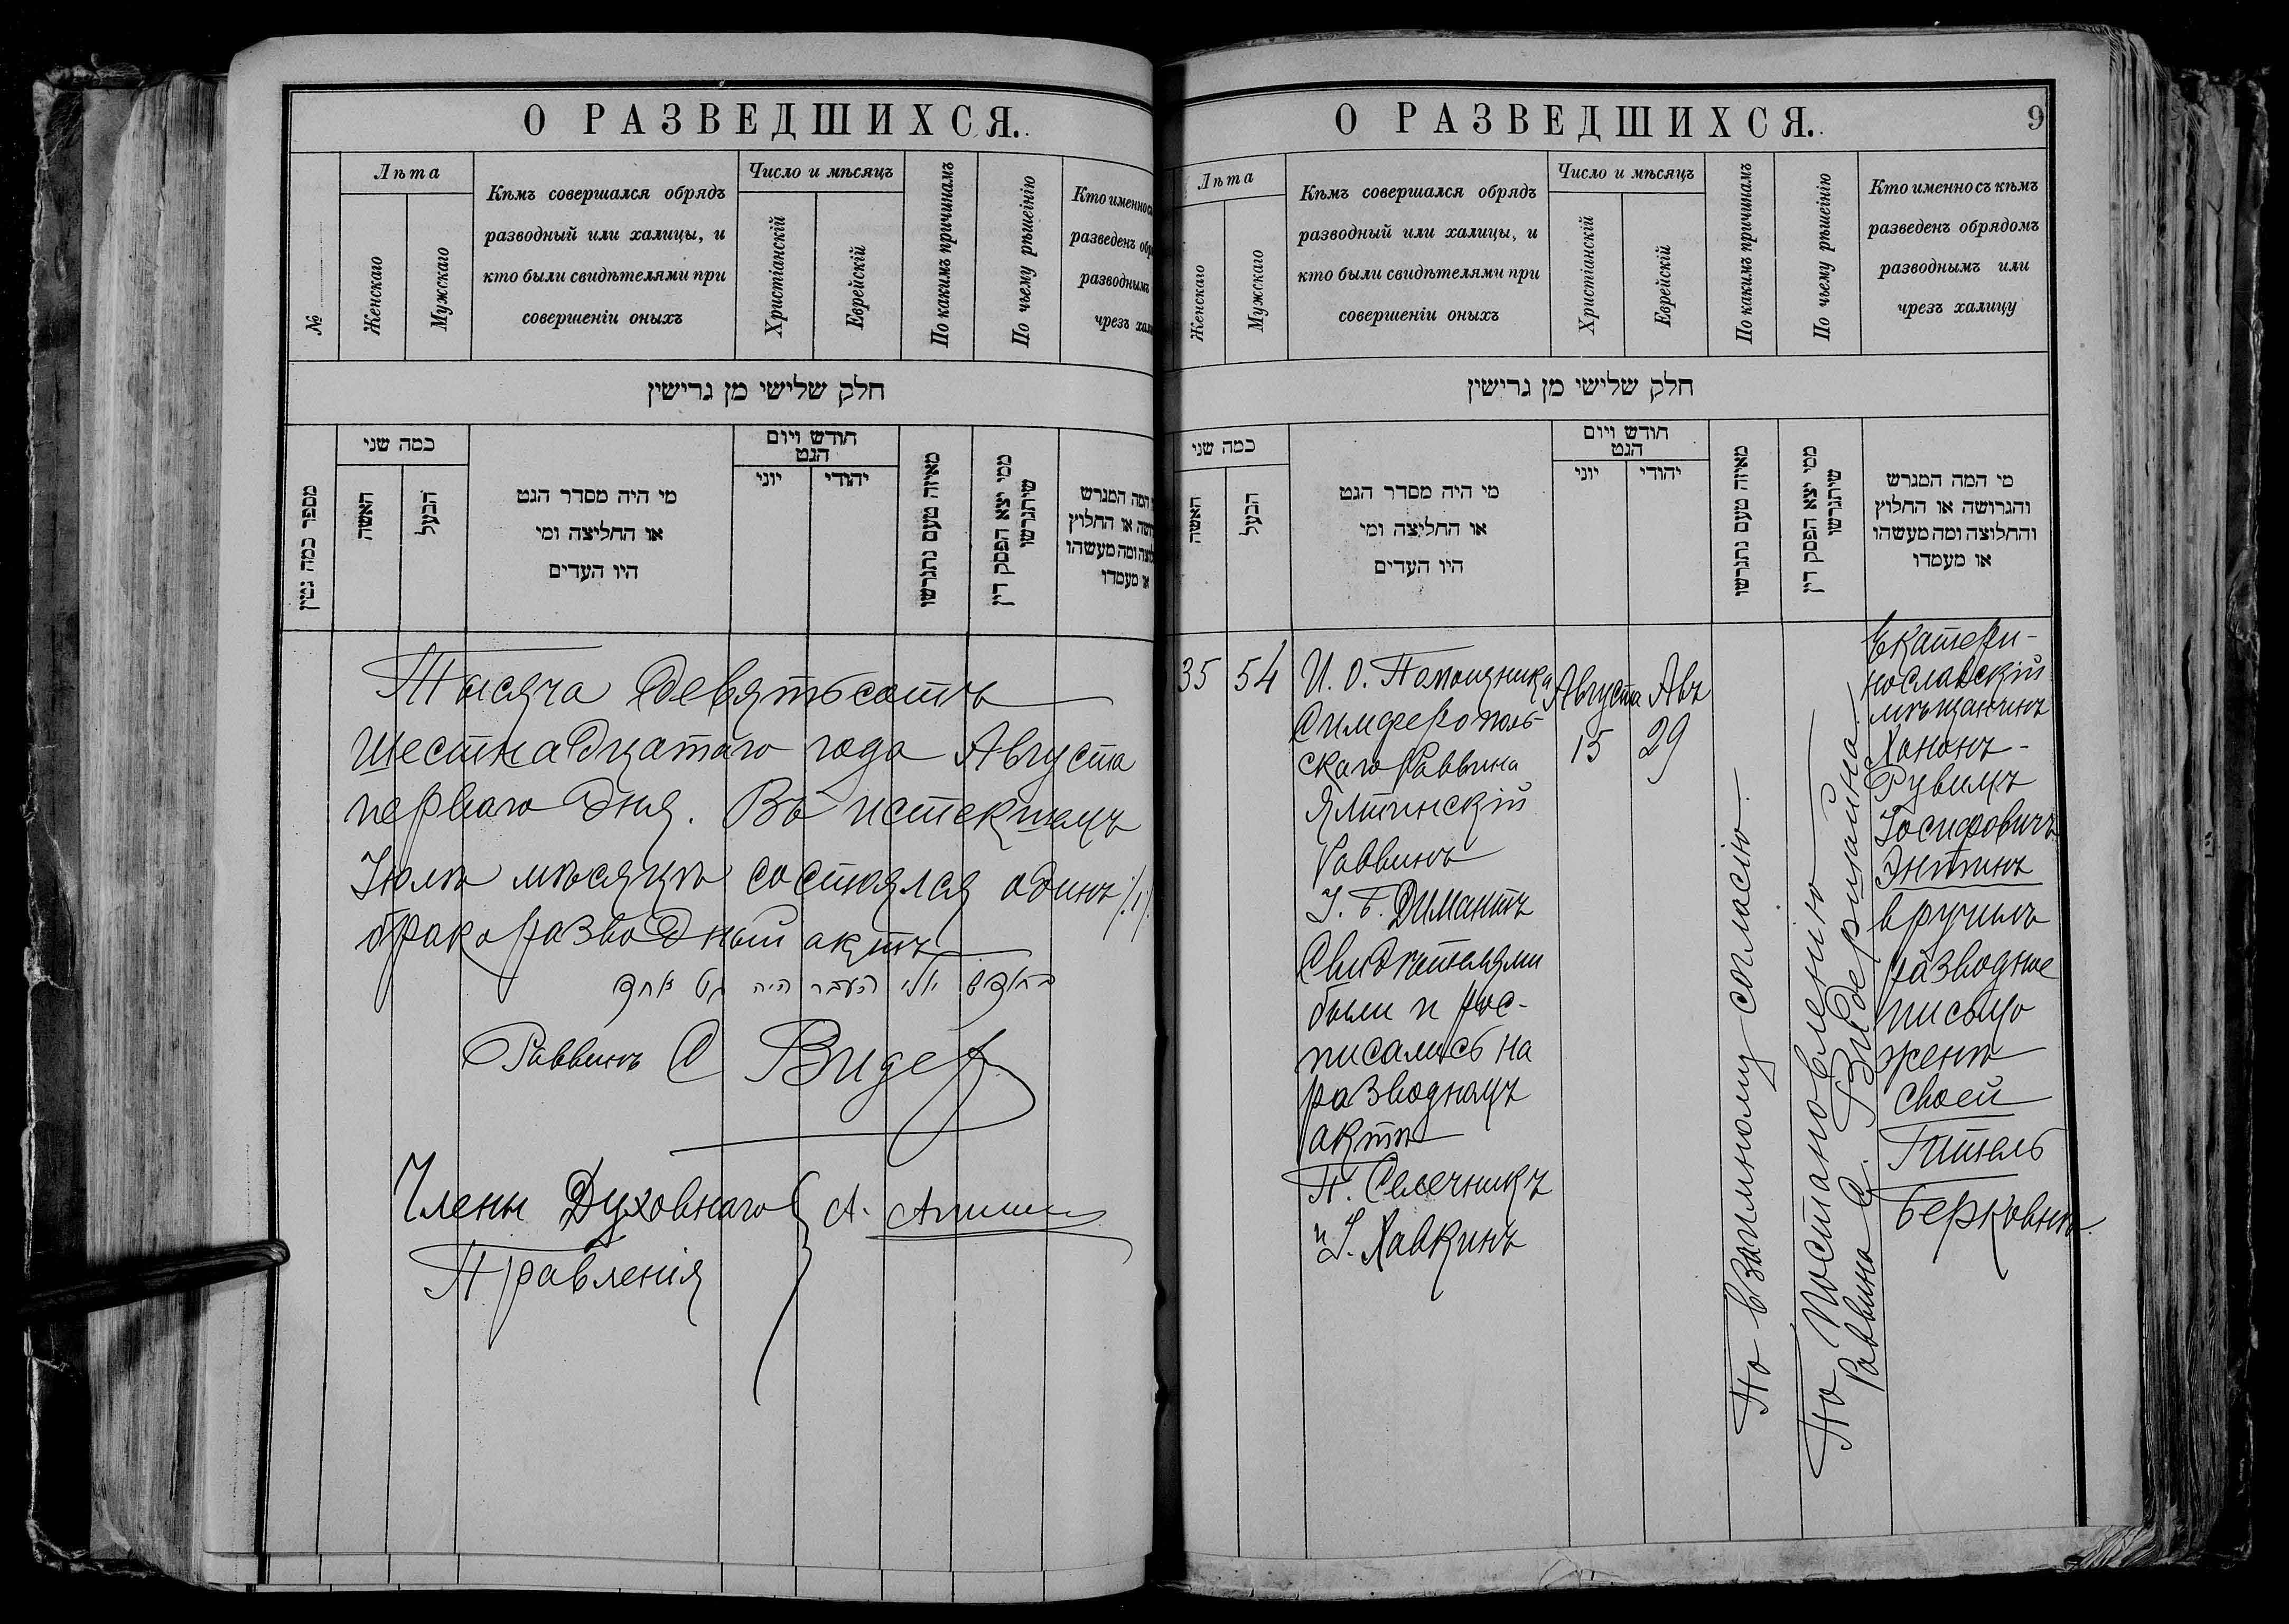 О РАЗВЕДШИХСЯ.
№
Лѣта
Женскаго
Мужскаго
Кѣмъ совершался обрядъ
разводный или халицы, и
кто были свидѣтелями при
совершеніи оныхъ
Число и мѣсяцъ
Христіанскій
Еврейскій
По какимъ причинамъ
По чьему рѣшеінію
Кто именно
разведенъ
разводнымъ
чрезъ
חלק שלישי מן גרישין
מספר כמה גטין
כמה שני
האשה
הבעל
מי היה מסדר הגט
או החליצה ומי
היו העדים
חודש ויום
הגט
יוני
יהודי
מאיזה טעם נתגרשו
ממי יצא הפסק דין
שיתגרשו
המה המגרש
או החלוץ
ומה מעשהו
או מעמדו
Тысяча девятьсотъ
шестнадцатаго года Августа
перваго дня. Въ истекшемъ
Іюлѣ мѣсяцѣ состоялся одинъ /1/
бракоразводный актъ
בחודש יולי העבר היה גט אחד
Раввинъ С Видер
Члены Духовнаго А.
Правленія
О РАЗВЕДШИХСЯ.
9
Лѣта
Женскаго
Мужскаго
Кѣмъ совершался обрядъ
разводный или халицы, и
кто были свидѣтелями при
совершеніи оныхъ
Число и мѣсяцъ
Христіанскій
Еврейскій
По какимъ причинамъ
По чьему рѣшеінію
Кто именно съ кѣмъ
разведенъ обрядомъ
разводнымъ или
чрезъ халицу
חלק שלישי מן גרישין
כמה שני
האשה
הבעל
מי היה מסדר הגט
או החליצה ומי
היו העדים
חודש ויום
הגט
יוני
יהודי
מאיזה טעם נתגרשו
ממי יצא הפסק דין
שיתגרשו
מי המה המגרש
והגרושה או החלוץ
והחלוצה ומה מעשהו
או מעמדו
35
54
И. О. Помощника
Симферополь-
скаго Раввина
Ялтинскій
Раввинъ
І. Б. Димантъ
Свидѣтелями
были и рос-
писались на
разводномъ
актѣ
П. Селечникъ
и І. Хавкинъ
Августа
15
Авъ
29
По взаимному согласію.
По постановленію
Раввина С. Видермана.
Екатери-
нославскій
мѣщанинъ
Хононъ-
Рувимъ
Іосифовичъ
Энтинъ
вручилъ
разводное
письмо
женѣ
своей
Гитель
Берковнѣ.